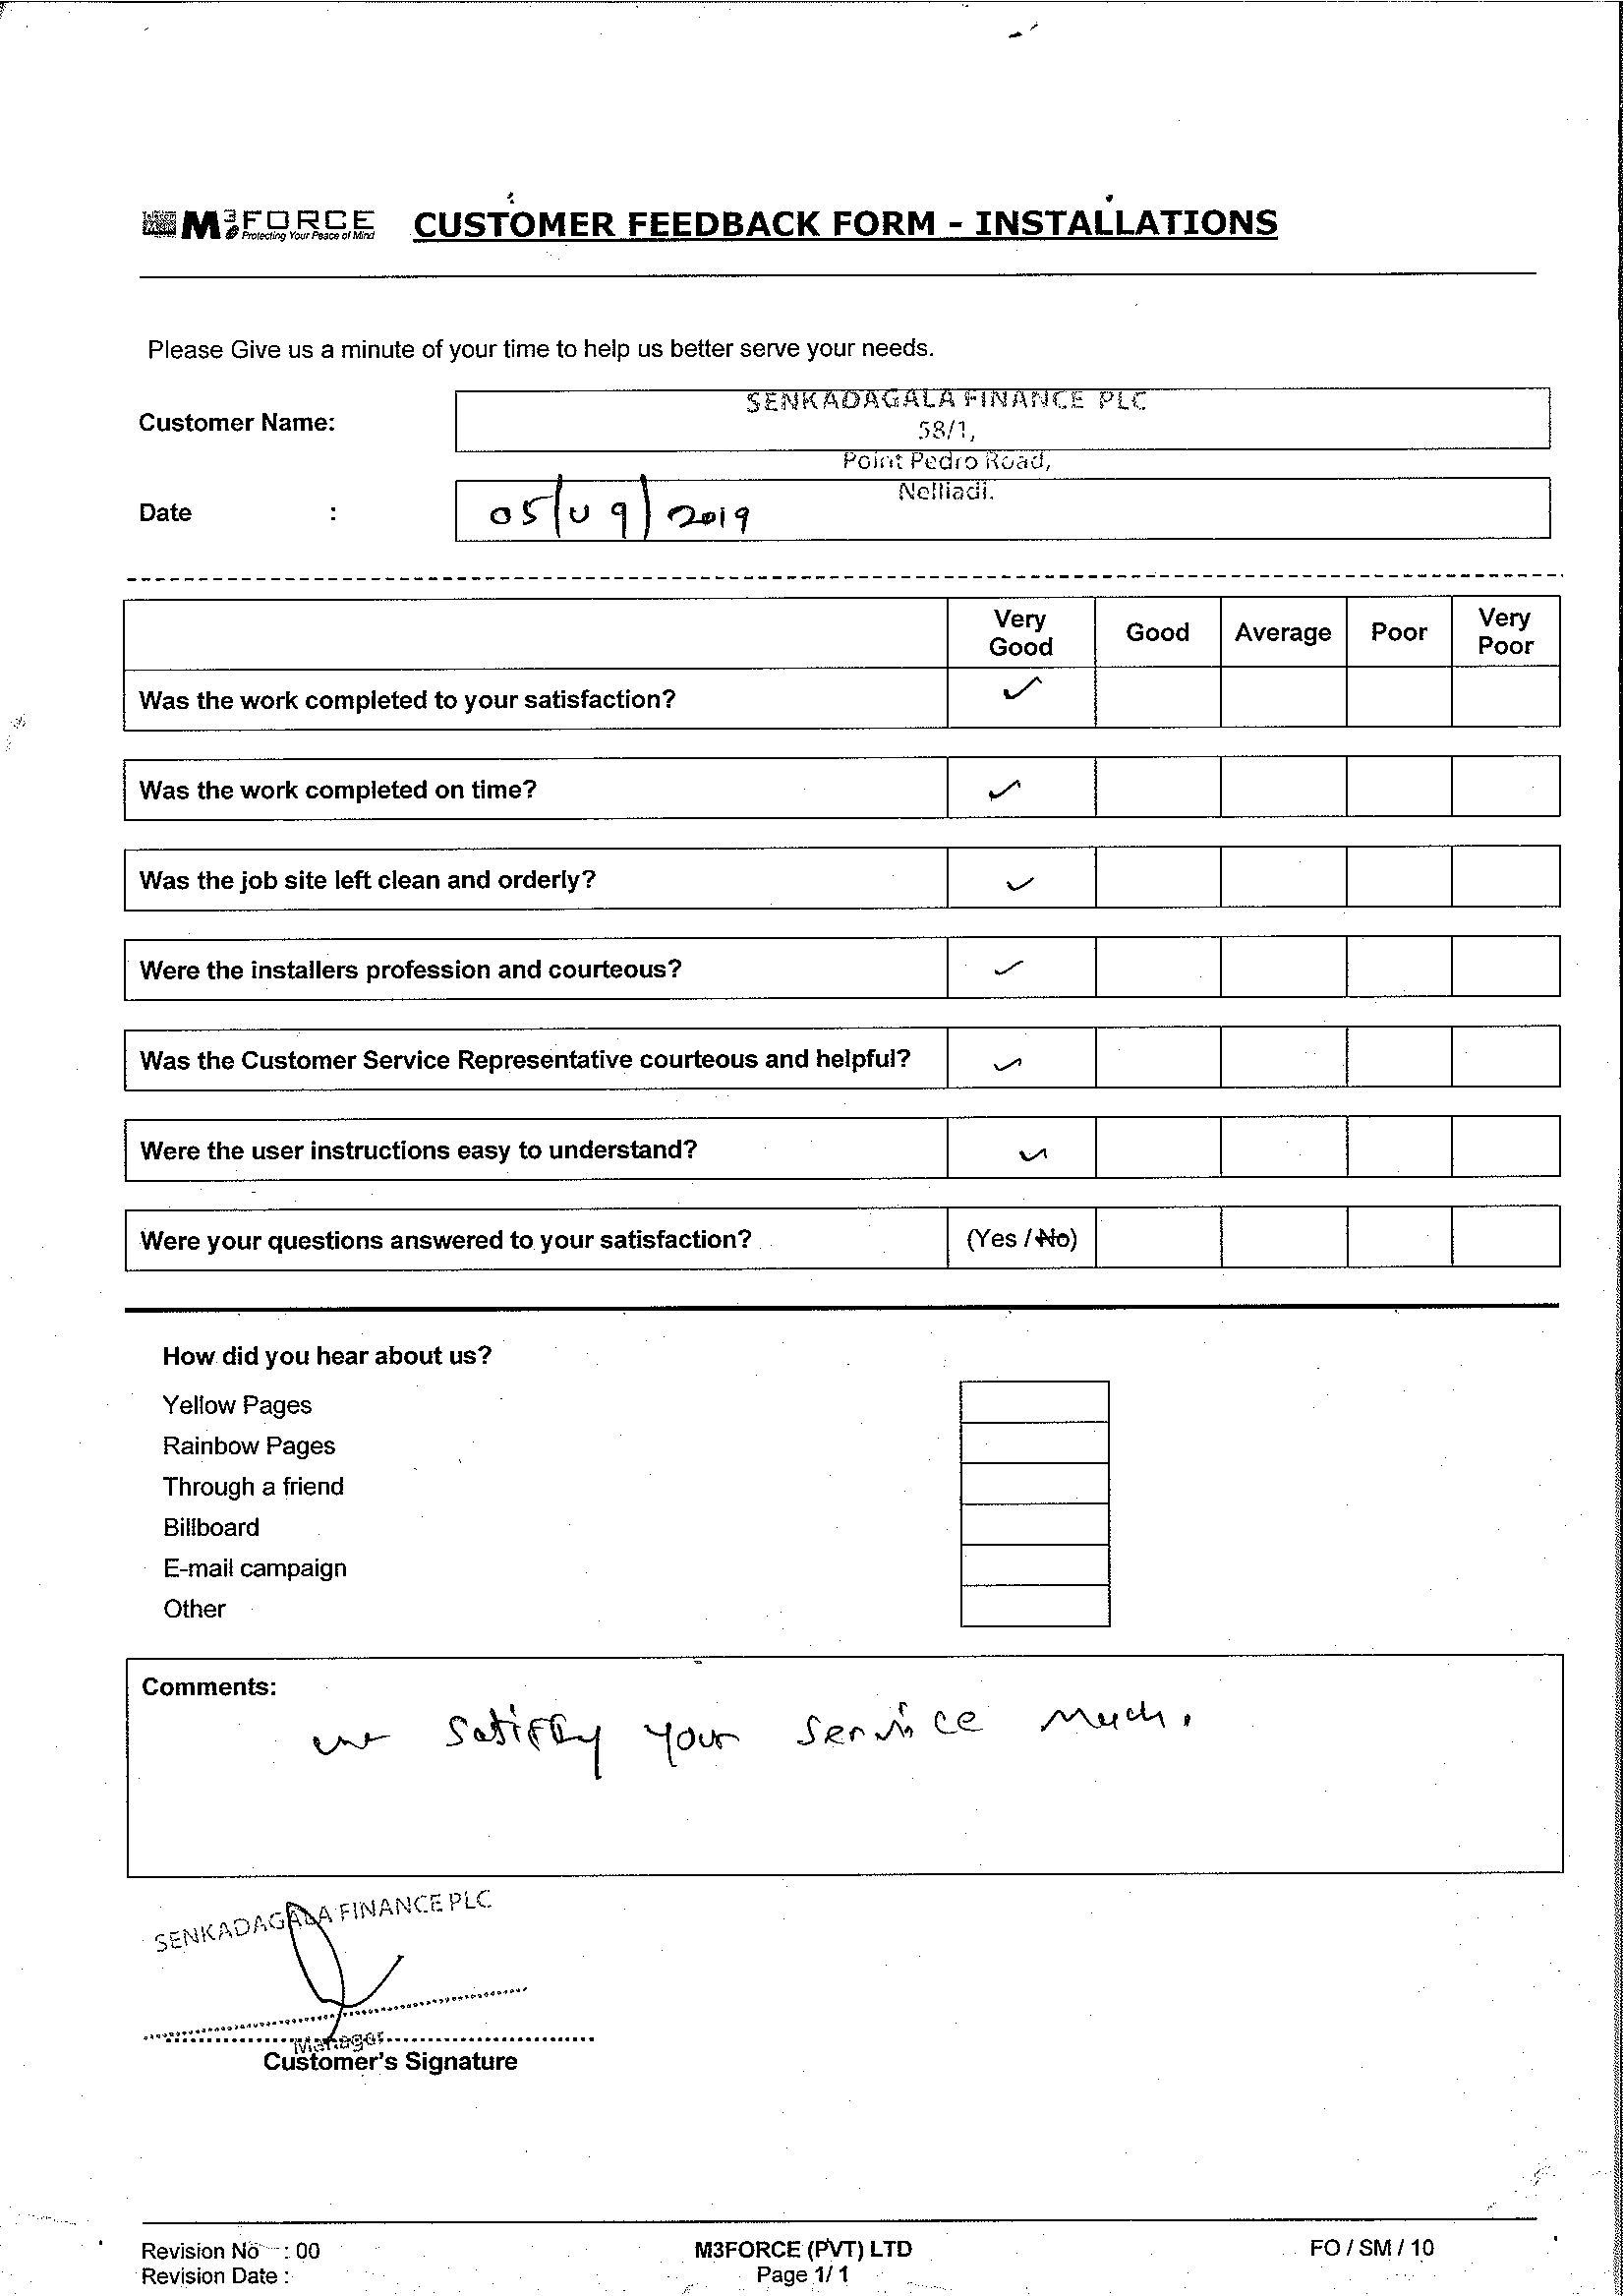 M3FORCE
Protecting Your Peace of Mind
CUSTOMER FEEDBACK FORM - INSTALLATIONS
Please Give us a minute of your time to help us better serve your needs.
Customer Name:
SENKADAGALA FINANCE PLC
58/1,
Point Pedro Road,
Nelliadi.
Date :
05/09/2019
Very Good Good Average Poor Very Poor
Was the work completed to your satisfaction? ✓
Was the work completed on time? ✓
Was the job site left clean and orderly? ✓
Were the installers profession and courteous? ✓
Was the Customer Service Representative courteous and helpful? ✓
Were the user instructions easy to understand? ✓
Were your questions answered to your satisfaction? (Yes / No)
How did you hear about us?
Yellow Pages
Rainbow Pages
Through a friend
Billboard
E-mail campaign
Other
Comments:
Satisfy your service much.
SENKADAGALA FINANCE PLC
Manager
Customer's Signature
Revision No : 00 M3FORCE (PVT) LTD FO / SM / 10
Revision Date : Page 1/ 1